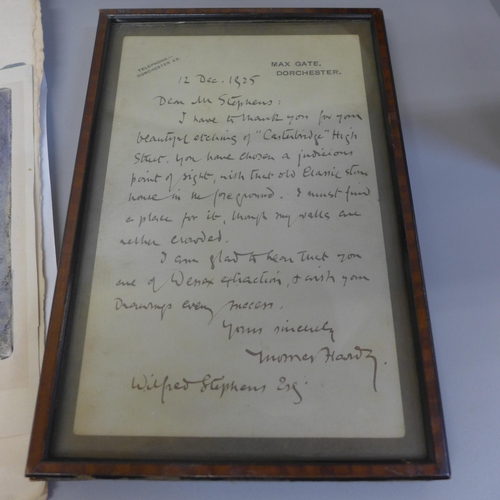 TELEPHONE
DORCHESTER 43.
MAX GATE,
DORCHESTER.
12 Dec. 1925
Dear Mr Stephens:
I have to thank you for your
beautiful etching of "Casterbridge" High
Street. You have chosen a judicious
point of sight, with that old Classic stone
house in the foreground. I must find
a place for it, though my walls are
rather crowded.
I am glad to hear that you
are of Wessex extraction, & wish your
Drawings every success.
Yours sincerely
Thomas Hardy
Wilfred Stephens Esq.